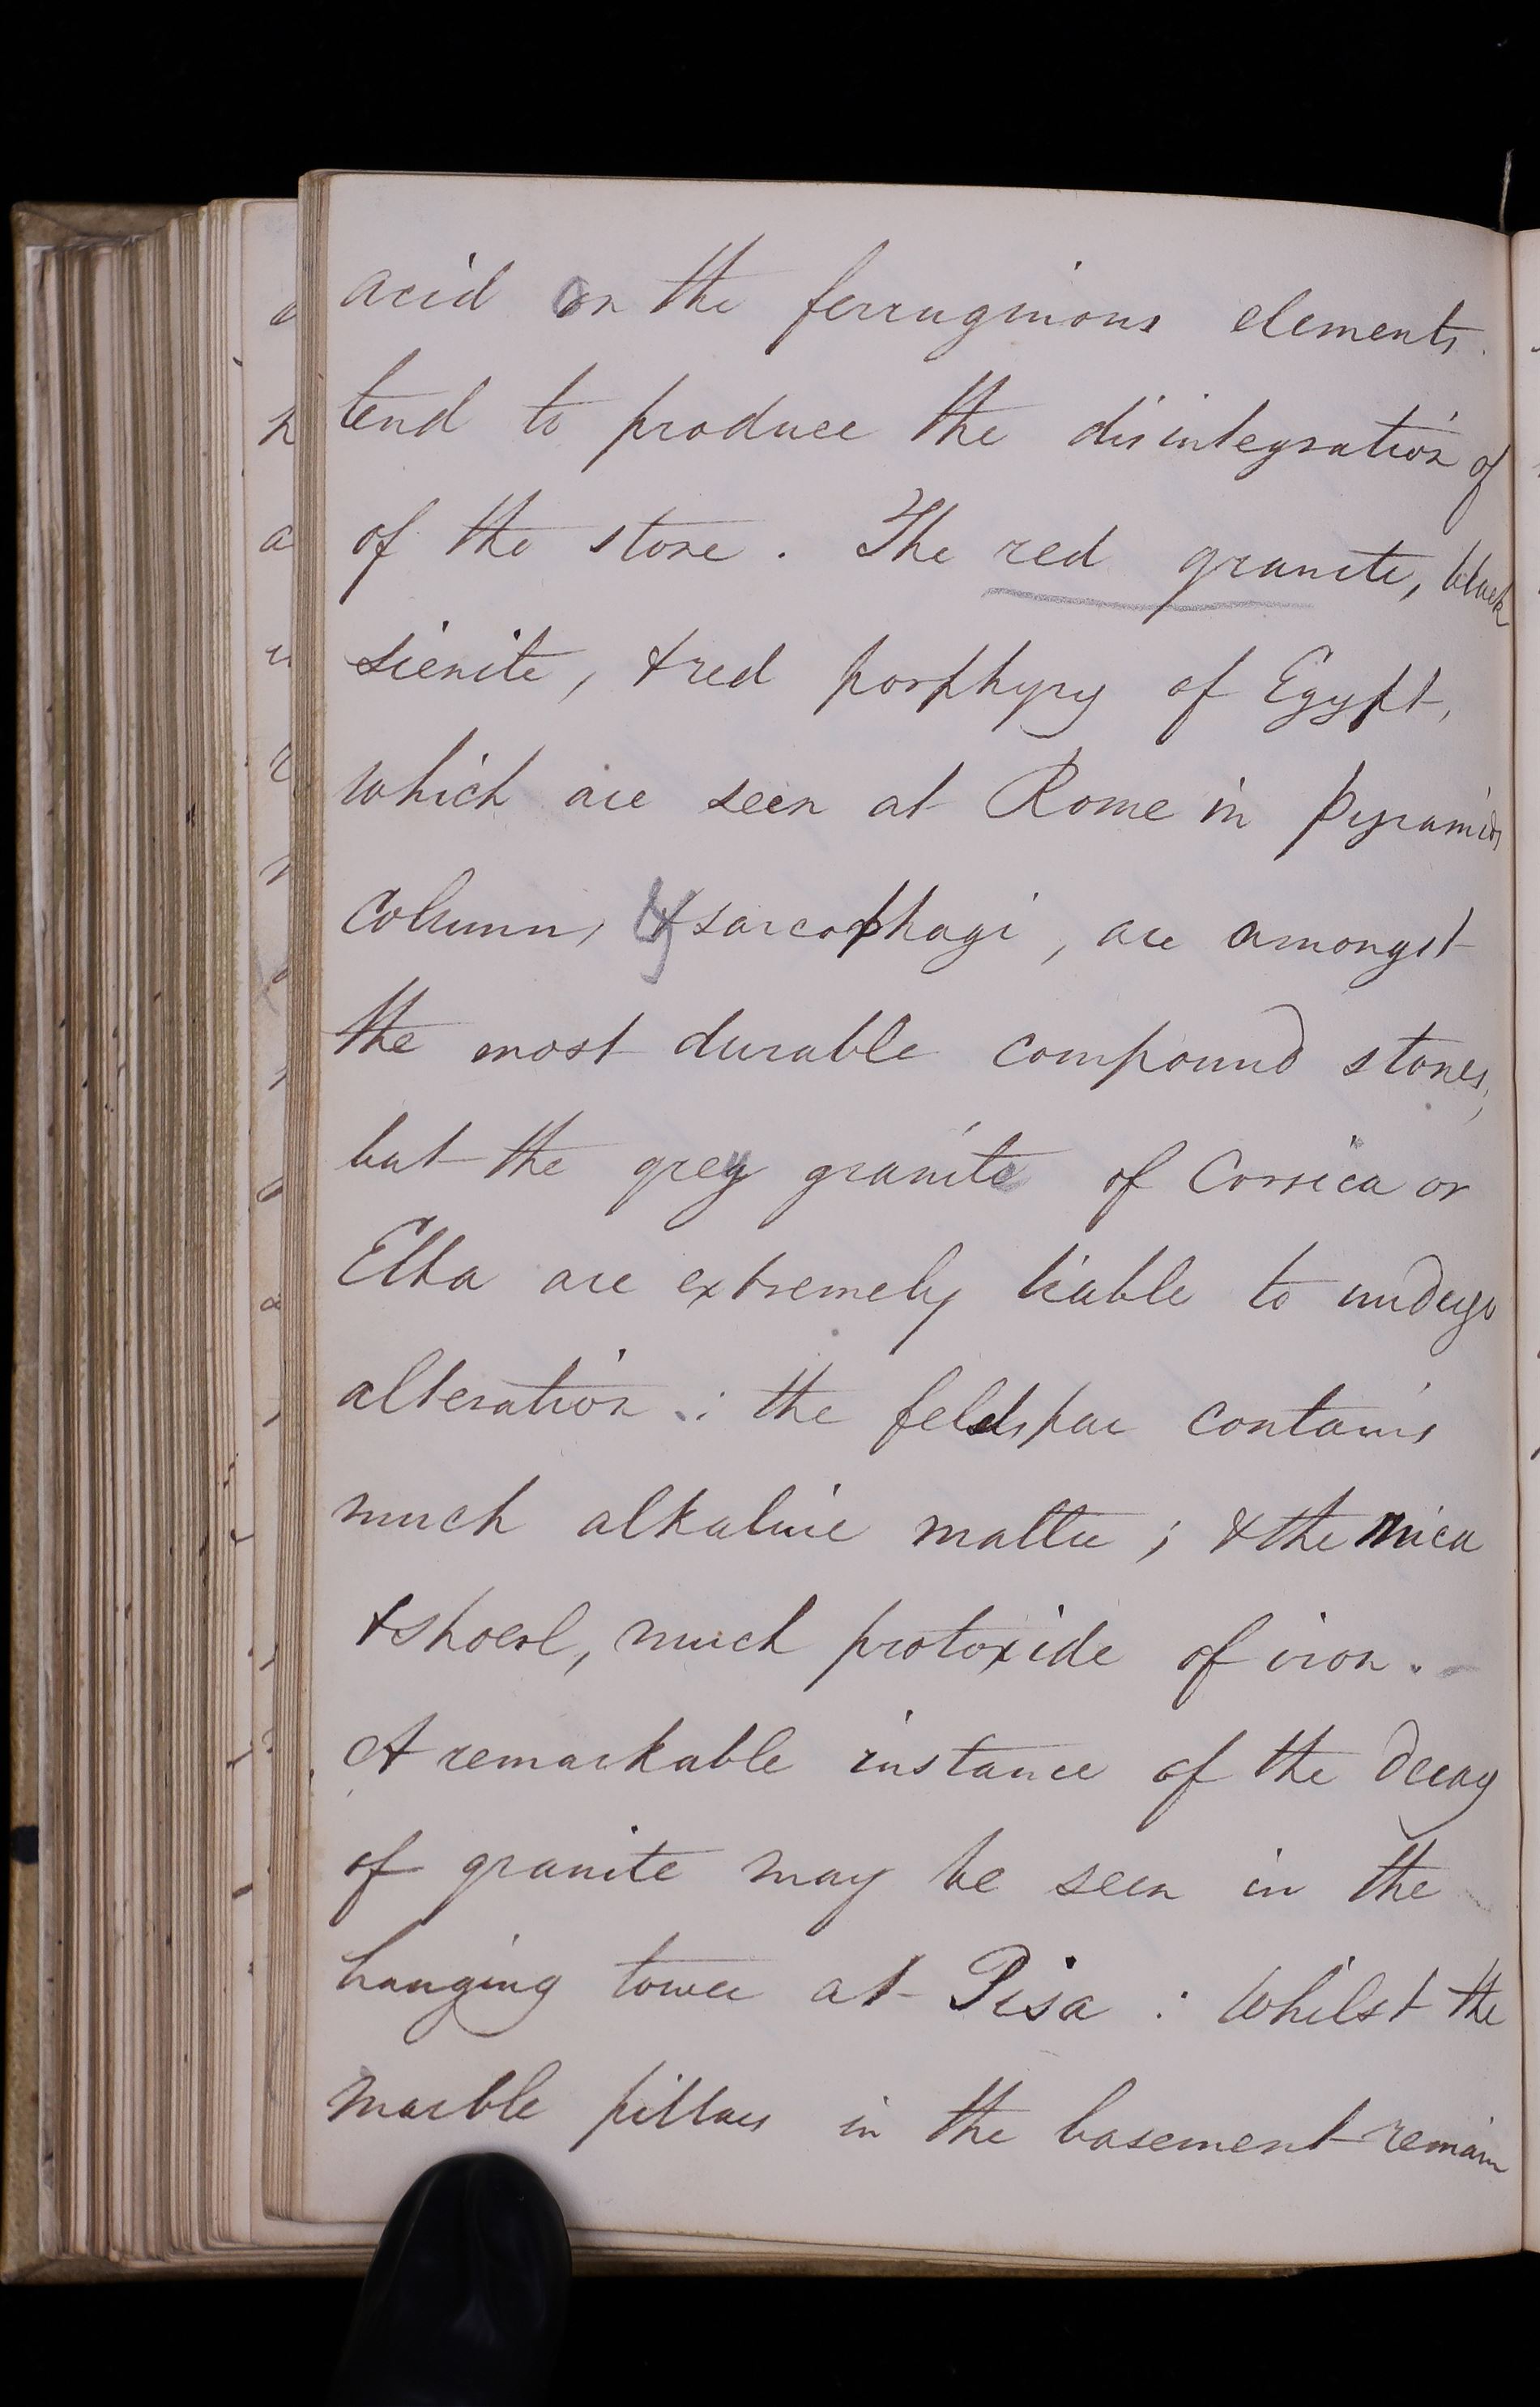 acid on the ferruginous elements
tend to produce the disintegration of
of the stone. The red granite, black
sienite, & red porphyry of Egypt,
which are seen at Rome in pyramids
columns, & sarcophagi, are amongst
the most durable compound stones;
but the grey granite of Corsica or
Elba are extremely liable to undergo
alteration: the feldspar contains
much alkaline matter; & the mica
& shoerl, much protoxide of iron.
A remarkable instance of the decay
of granite may be seen in the
hanging tower at Pisa: whilst the
marble pillars in the basement remain